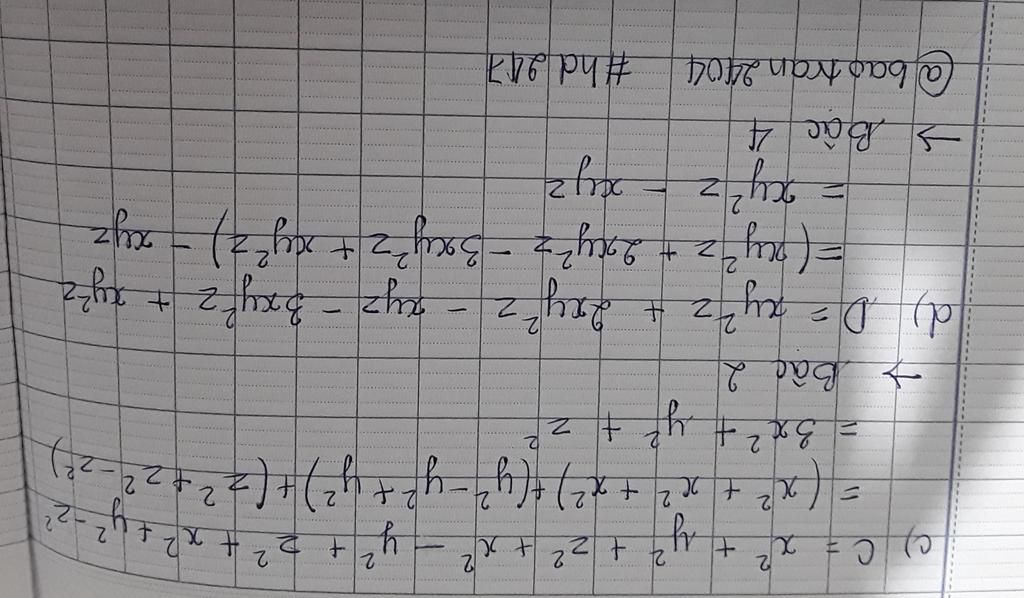 c) C = x² + y² + z² + x² - y² + z² + x² + y² - z²
= (x² + x² + x²) + (y² - y² + y²) + (z² + z² - z²)
= 3x² + y² + z²
→ Bậc 2
d) D = xy²z + 2xy²z - xyz - 3xy²z + xy²z
= (xy²z + 2xy²z - 3xy²z + xy²z) - xyz
= xy²z - xyz
→ Bậc 4
@baotran2404 #hd247